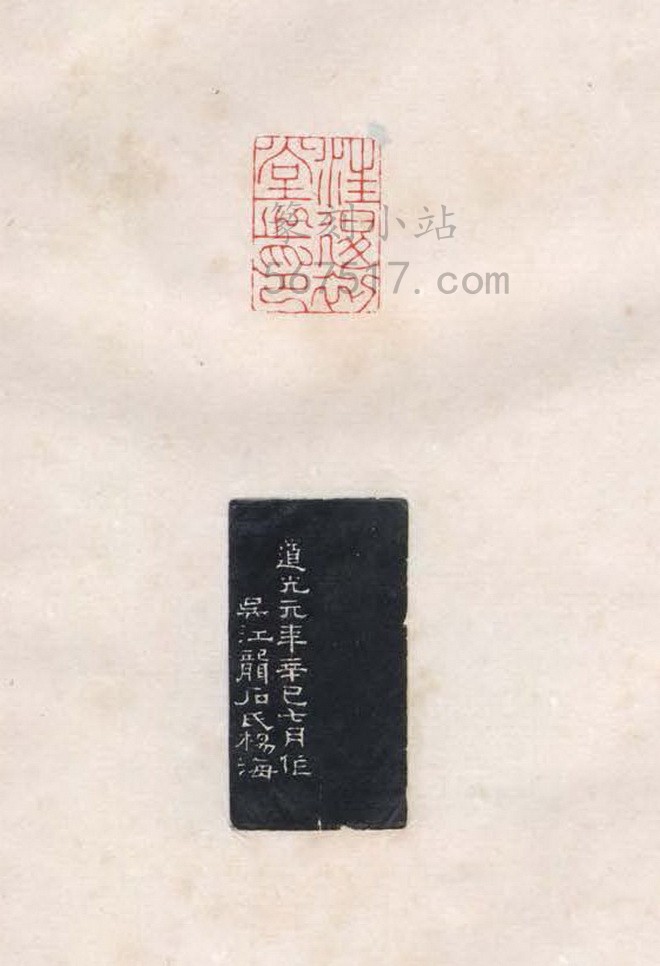 篆刻小站
567517.com
道光元年辛巳七月作
吳江龍石氏楊海